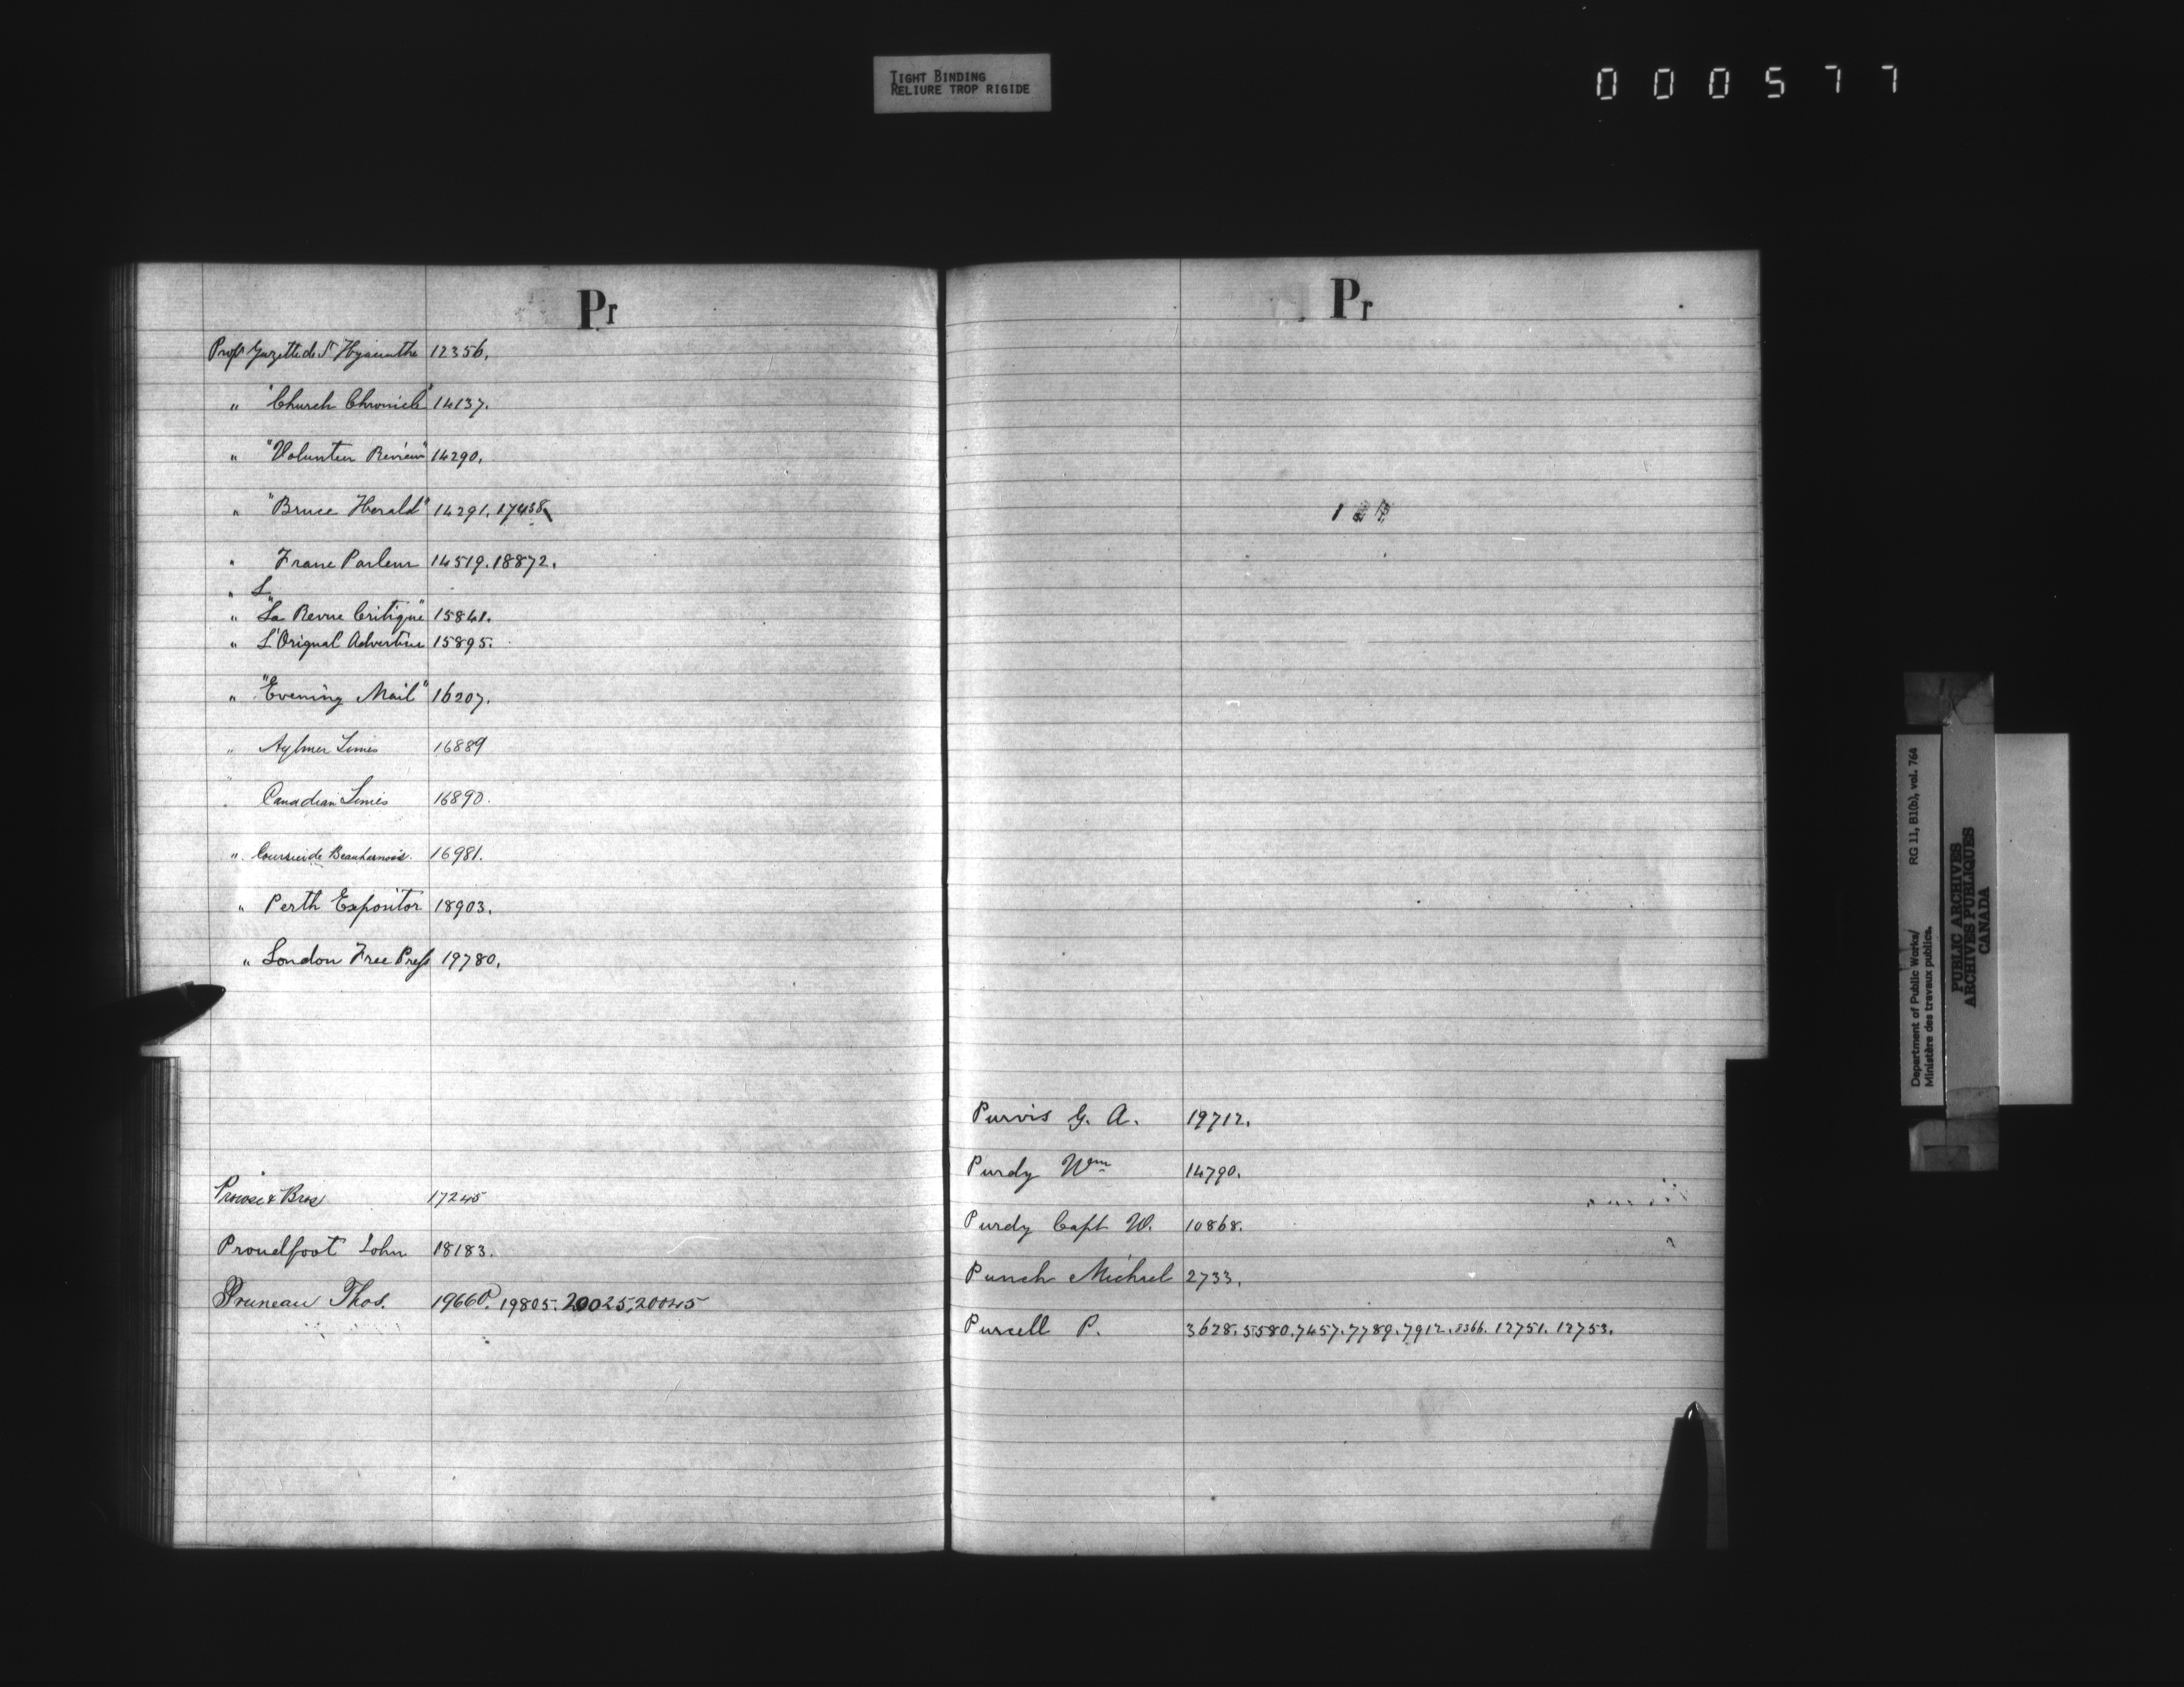 TIGHT BINDING
RELIURE TROP RIGIDE
000577
Pr
Propr Gazette de St Hyacinthe 12356.
" "Church Chronicle" 14137.
" "Volunteer Review" 14290.
" "Bruce Herald" 14291. 17438
" Franc Parleur 14519. 18872.
" L
" "La Revue Critique" 15841.
" L'Orignal Advertiser 15895.
" "Evening Mail" 16207.
" Aylmer Times 16889
" Canadian Times 16890.
" Courrier de Beauharnois. 16981.
" Perth Expositor 18903.
" London Free Press 19780.
Prowse & Bros 17245
Proudfoot John 18183.
Pruneau Thos. 19660. 19805. 20025. 20045
Pr
Purvis G. A. 19712.
Purdy Wm 14790.
Purdy Capt W. 10868.
Punch Michael 2733.
Purcell P. 3628. 5580. 7457. 7789. 7912. 8366. 12751. 12753.
Department of Public Works/ RG 11, B1(b), vol. 764
Ministère des travaux publics.
PUBLIC ARCHIVES
ARCHIVES PUBLIQUES
CANADA